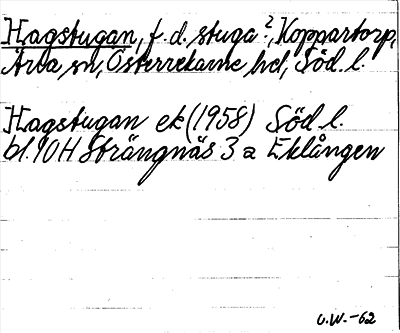 Hagstugan, f. d. stuga?, Koppartorp,
Ärla sn, Österrekarne hd, Söd. l.
Hagstugan ek (1958) Söd. l.
bl. 10H Strängnäs 3 a Eklången
G.W.-62